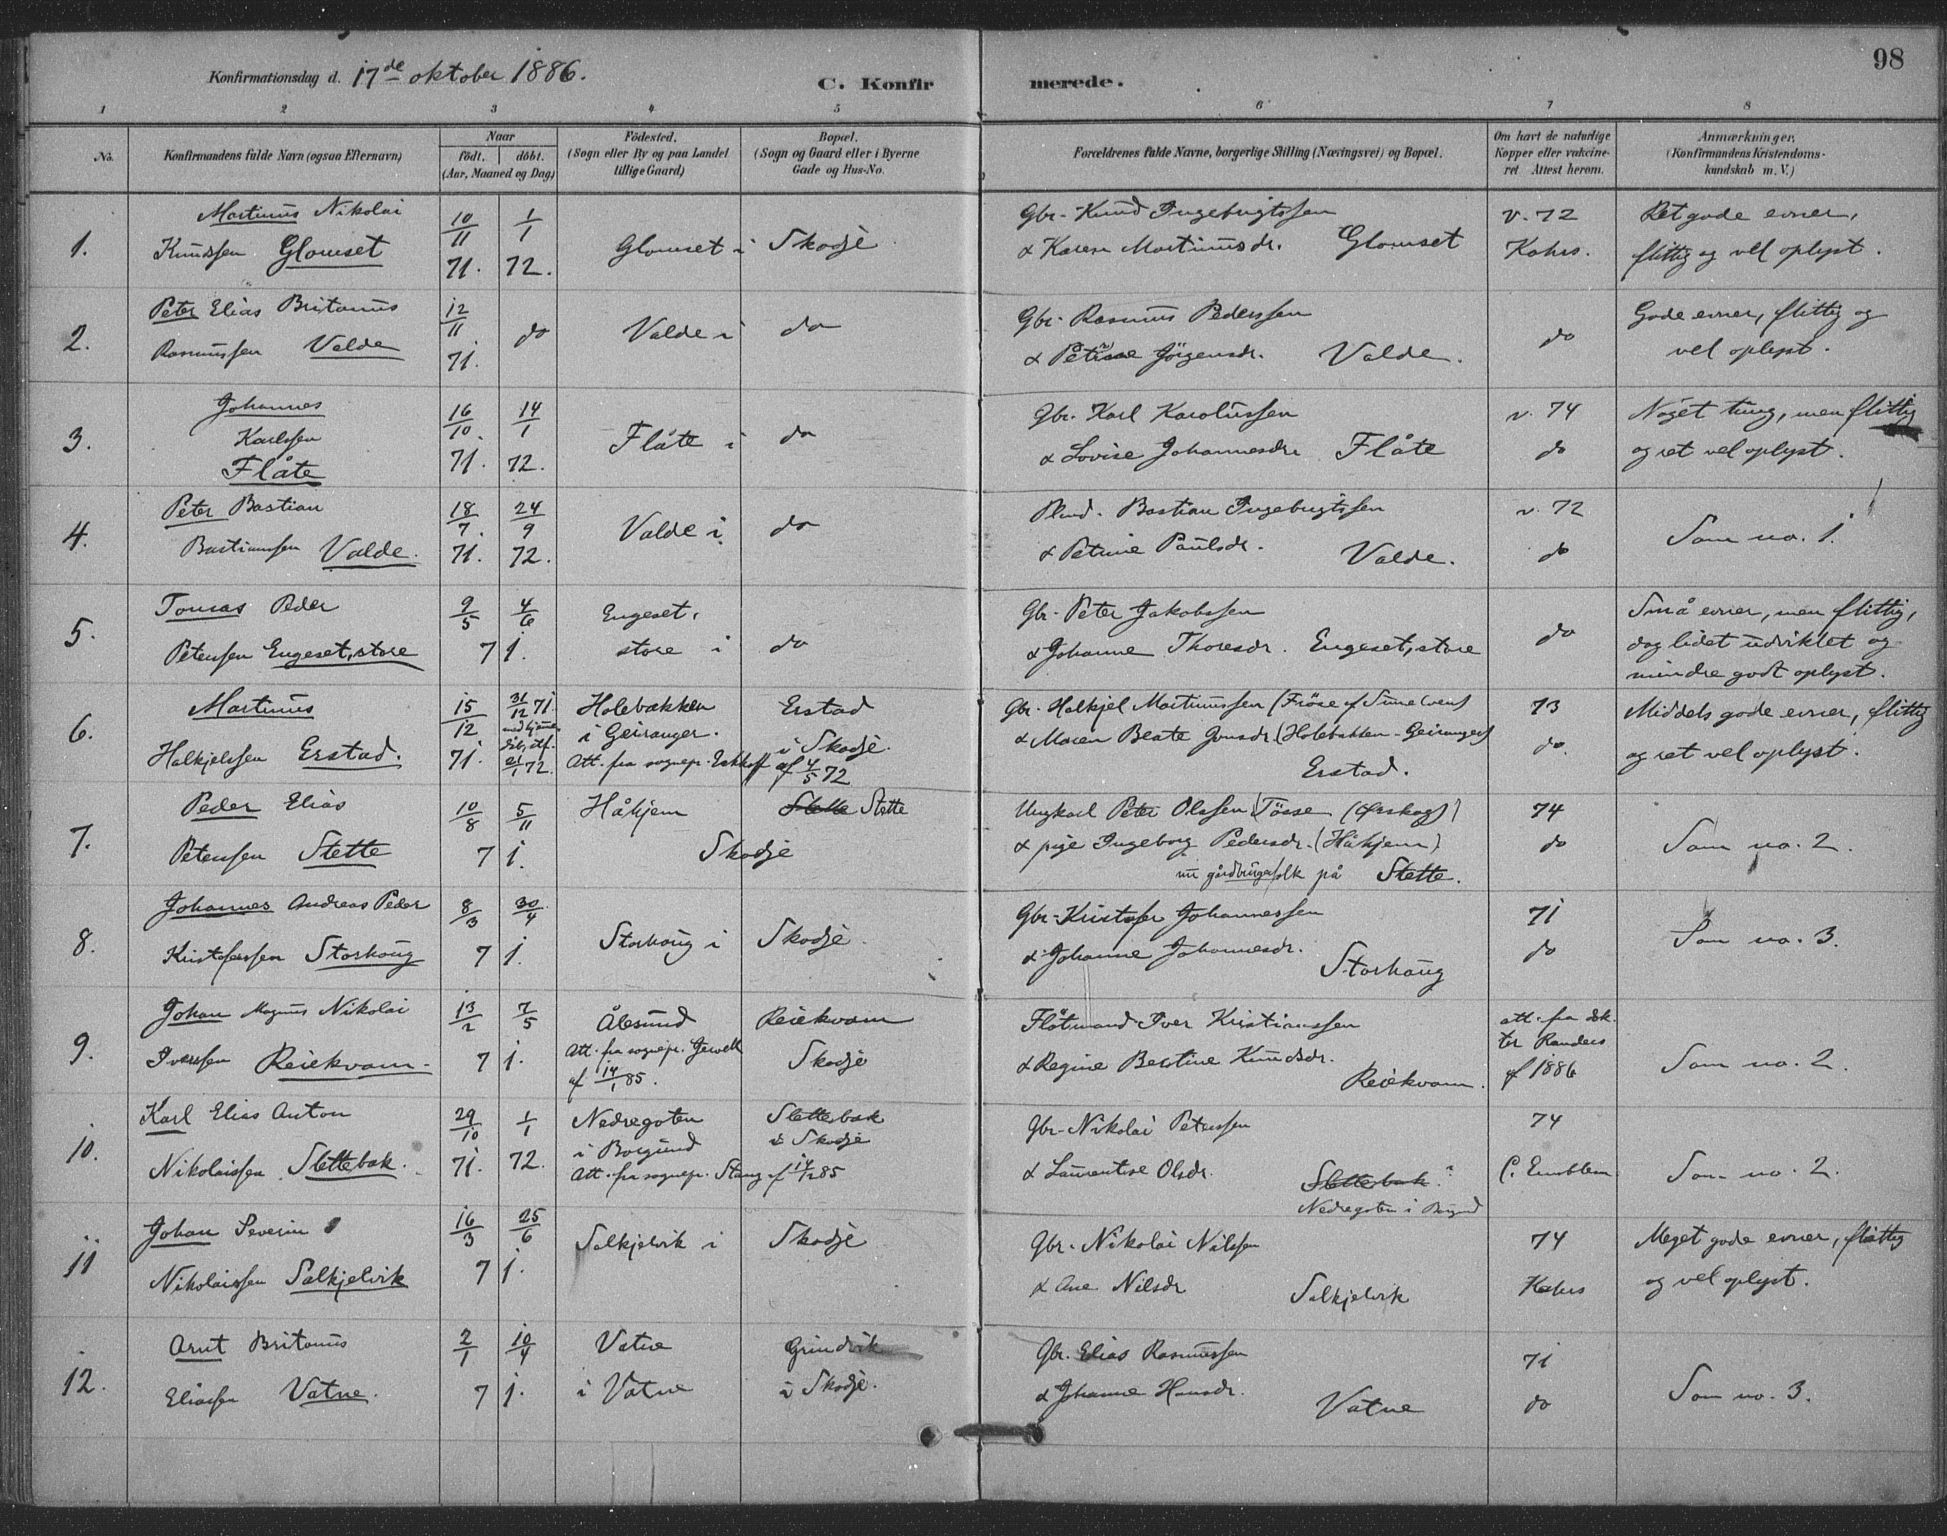 98
Konfirmationsdag d. 17de oktober 1886.
C. Konfirmerede.
1 2 3 4 5 6 7 8
No.
Konfirmandens fulde Navn (ogsaa Efternavn)
Naar
födt. döbt.
(Aar, Maaned og Dag)
Födested.
(Sogn eller By og paa Landet
tillige Gaard)
Bopæl.
(Sogn og Gaard eller i Byerne
Gade og Hus-No.
Forældrenes fulde Navne, borgerlige Stilling (Næringsvei) og Bopæl.
Om havt de naturlige
Kopper eller vakcine-
ret Attest herom.
Anmærkninger,
(Konfirmandens Kristendoms-
kundskab m. V.)
1. Martinus Nikolai
Knudssen Glomset
10/11 71. 1/1 72.
Glomset i Skodje
Gbr. Knud Ingebrigtssen
& Karen Martinusdr. Glomset
v. 72
Kahrs.
Ret gode evner,
flittig og vel oplyst.
2. Peter Elias Britanus
Rasmussen Valde
12/11 71. do
Valde i do
Gbr. Rasmus Pederssen
& Petrine Jörgensdr. Valde.
do
Gode evner, flittig og
vel oplyst.
3. Johannes
Karlssen
Flåte
16/10 71. 14/1 72.
Flåte i do
Gbr. Karl Karolussen
& Lovise Johannesdr. Flåte
v. 74
do
Noget tung, men flittig
og ret vel oplyst.
4. Peter Bastian
Bastianssen Valde.
18/7 71. 24/9 72.
Valde i do
Plmd. Bastian Ingebrigtssen
& Petrine Paulsdr. Valde.
v. 72
do
Som no. 1.
5. Tomas Peder
Peterssen Engeset, store
9/5 4/6 71.
Engeset,
store i do
Gbr. Peter Jakobssen
& Johanne Thoresdr. Engeset, store
do
Små evner, men flittig,
dog lidet udviklet og
mindre godt oplyst.
6. Martinus
Halkjelssen Erstad.
15/12 71. 31/12 71
21/1 72.
Holebakken
i Geiranger.
Att. fra sognepr. Eckhoff af 4/5 72
Erstad
i Skodje.
Gbr. Halkjel Martinussen
& Maren Beate Jonsdr. (Holebakken - Geiranger)
Erstad.
73
do.
Middels gode evner, flittig
og ret vel oplyst.
7. Peder Elias
Peterssen Stette
10/8 5/11 71.
Håhjem Stette
Skodje
Ungkarl Peter Olssen Tösse (Ørskog)
& pige Ingeborg Pedersdr. (Håhjem)
nu gårdbrugerfolk på Stette.
74
do
Som no. 2.
8. Johannes Andreas Peder
Kristoferssen Storhoug
8/3 30/4 71.
Storhoug i Skodje.
Gbr. Kristofer Johannessen
& Johanne Johannesdr.
Storhoug
71
do
Som no. 3.
9. Johan Magnus Nikolai
Iverssen Reiekvam.
13/2 7/5 71.
Ålesund
Att. fra sognepr. Jervell
af 14/1 85.
Reiekvam
Skodje
Flåtmand Iver Kristianssen
& Regine Bertine Knudsdr.
Reiekvam.
att. fra dok
ter Randers
af 1886
Som no. 2.
10. Karl Elias Anton
Nikolaissen Slettebak.
29/10 71. 1/1 72.
Nedregoten
i Borgund
Att. fra sognepr. Stang af 14/12 85
Slettebak
i Skodje
Gbr. Nikolai Peterssen
& Laurentse Olsdr. Slettebak
Nedregoten i Borgund
74
C. Emblem
Som no. 2.
11 Johan Severin
Nikolaissen Solkjelvik
16/3 25/6 71.
Solkjelvik i Skodje
Gbr. Nikolai Nilssen
& Ane Nilsdr Solkjelvik
74
Kahrs
Meget gode evner, flittig
og vel oplyst.
12. Arnt Britanus
Eliassen Vatne.
2/1 10/4 71.
Vatne
i Vatne
Grindvik
i Skodje.
Gbr. Elias Rasmussen
& Johanne Hansdr.
Vatne
71
do
Som no. 3.